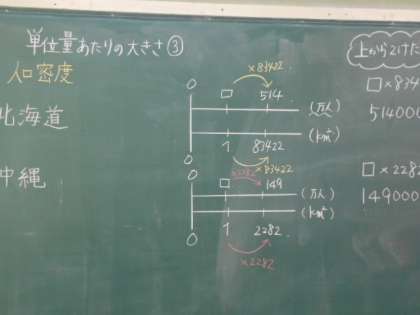 単位量あたりの大きさ③
人口密度
上から2けた
×83422
0 □ 514 (万人)
0 1 83422 (km²)
×83422
北海道
□×834
514000
×2282
□ 149 (万人)
0 1 2282 (km²)
×2282
沖縄
□×228
149000